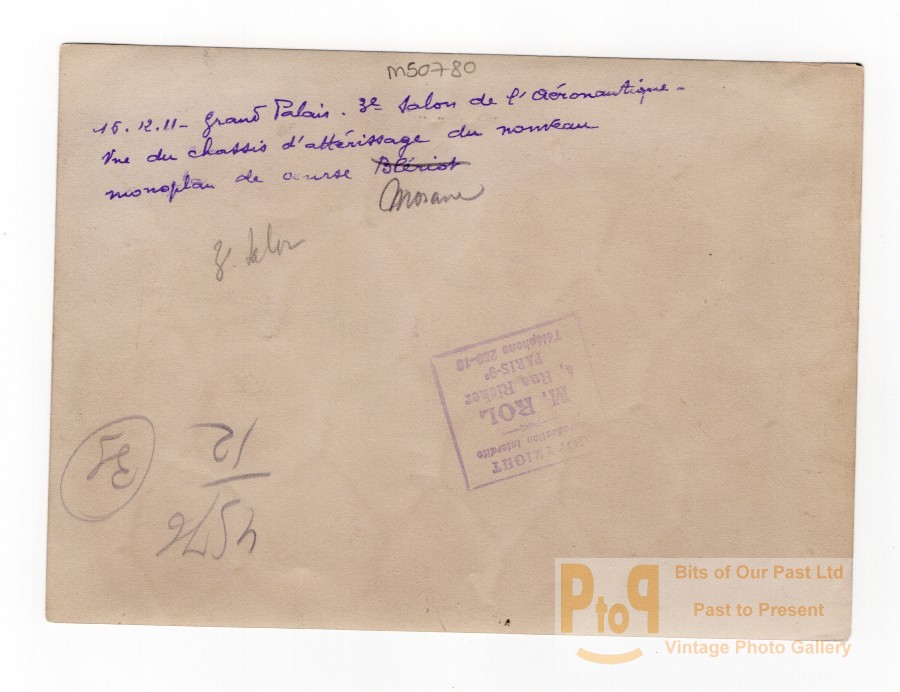 m50780
15.12.11 - Grand Palais. 3e Salon de l'aéronautique -
Vue du chassis d'attérissage du nouveau
monoplan de course Blériot
Morane
3e Salon
COPYRIGHT
Interdite
M. ROL
4, Rue Richer
PARIS-9e
Téléphone 288-10
12
35
Bits of Our Past Ltd
PtoP
Past to Present
Vintage Photo Gallery